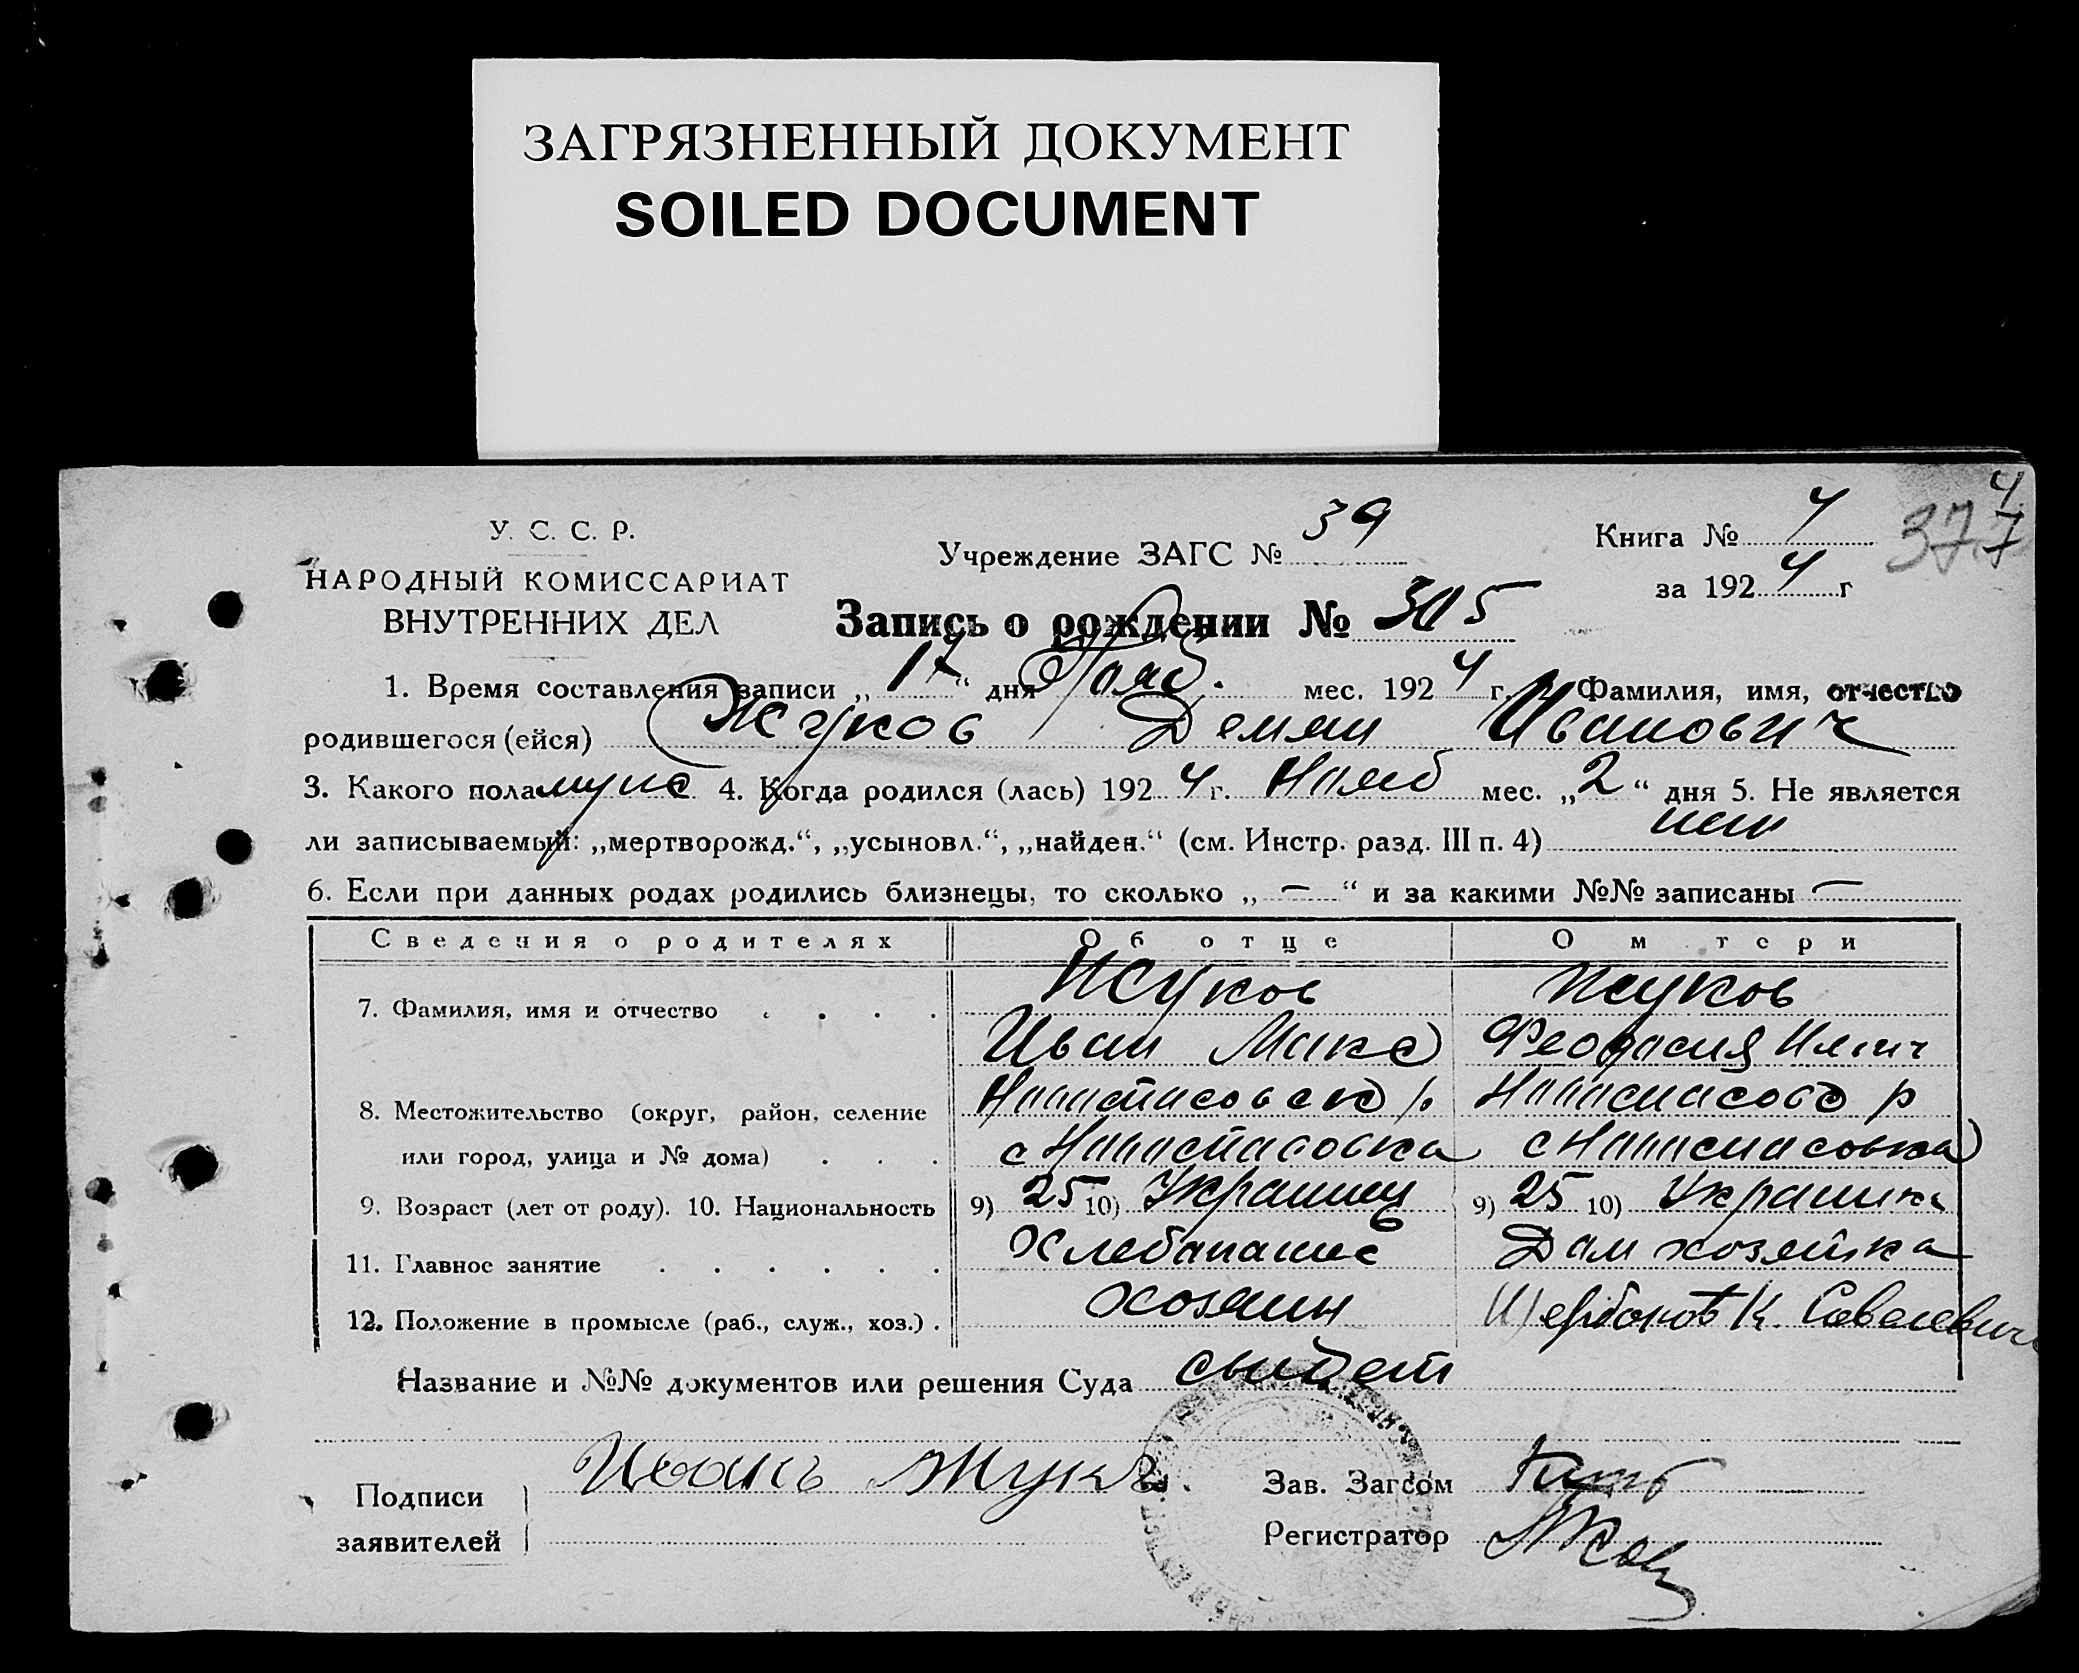 ЗАГРЯЗНЕННЫЙ ДОКУМЕНТ
SOILED DOCUMENT
У. С. С. Р.
НАРОДНЫЙ КОМИССАРИАТ
ВНУТРЕННИХ ДЕЛ
Учреждение ЗАГС № 39
Книга № 4
377
за 1924 г
Запись о рождении № 305
1. Время составления записи „17“ дня Нояб. мес. 1924 г. 2. Фамилия, имя, отчество
родившегося (ейся) Жуков Демян Иванович
3. Какого пола мужс 4. Когда родился (лась) 1924 г. Нояб мес. „2“ дня 5. Не является
ли записываемый: „мертворожд.“, „усыновл.“, „найден.“ (см. Инстр. разд. III п. 4) нет
6. Если при данных родах родились близнецы, то сколько „—“ и за какими №№ записаны —
Сведения о родителях Об отце О м тери
7. Фамилия, имя и отчество Жуков Жуков
Иван Макс Феодосия Ильич
8. Местожительство (округ, район, селение
или город, улица и № дома)
9. Возраст (лет от роду). 10. Национальность 9) 25 10) Украинец 9) 25 10) Украинка
11. Главное занятие Хлебопашес Дом хозяйка
12. Положение в промысле (раб., служ., хоз.) хозяин К. Савелевич
Название и №№ документов или решения Суда
Подписи заявителей Иванъ Жукъ.
Зав. Загсом
Регистратор